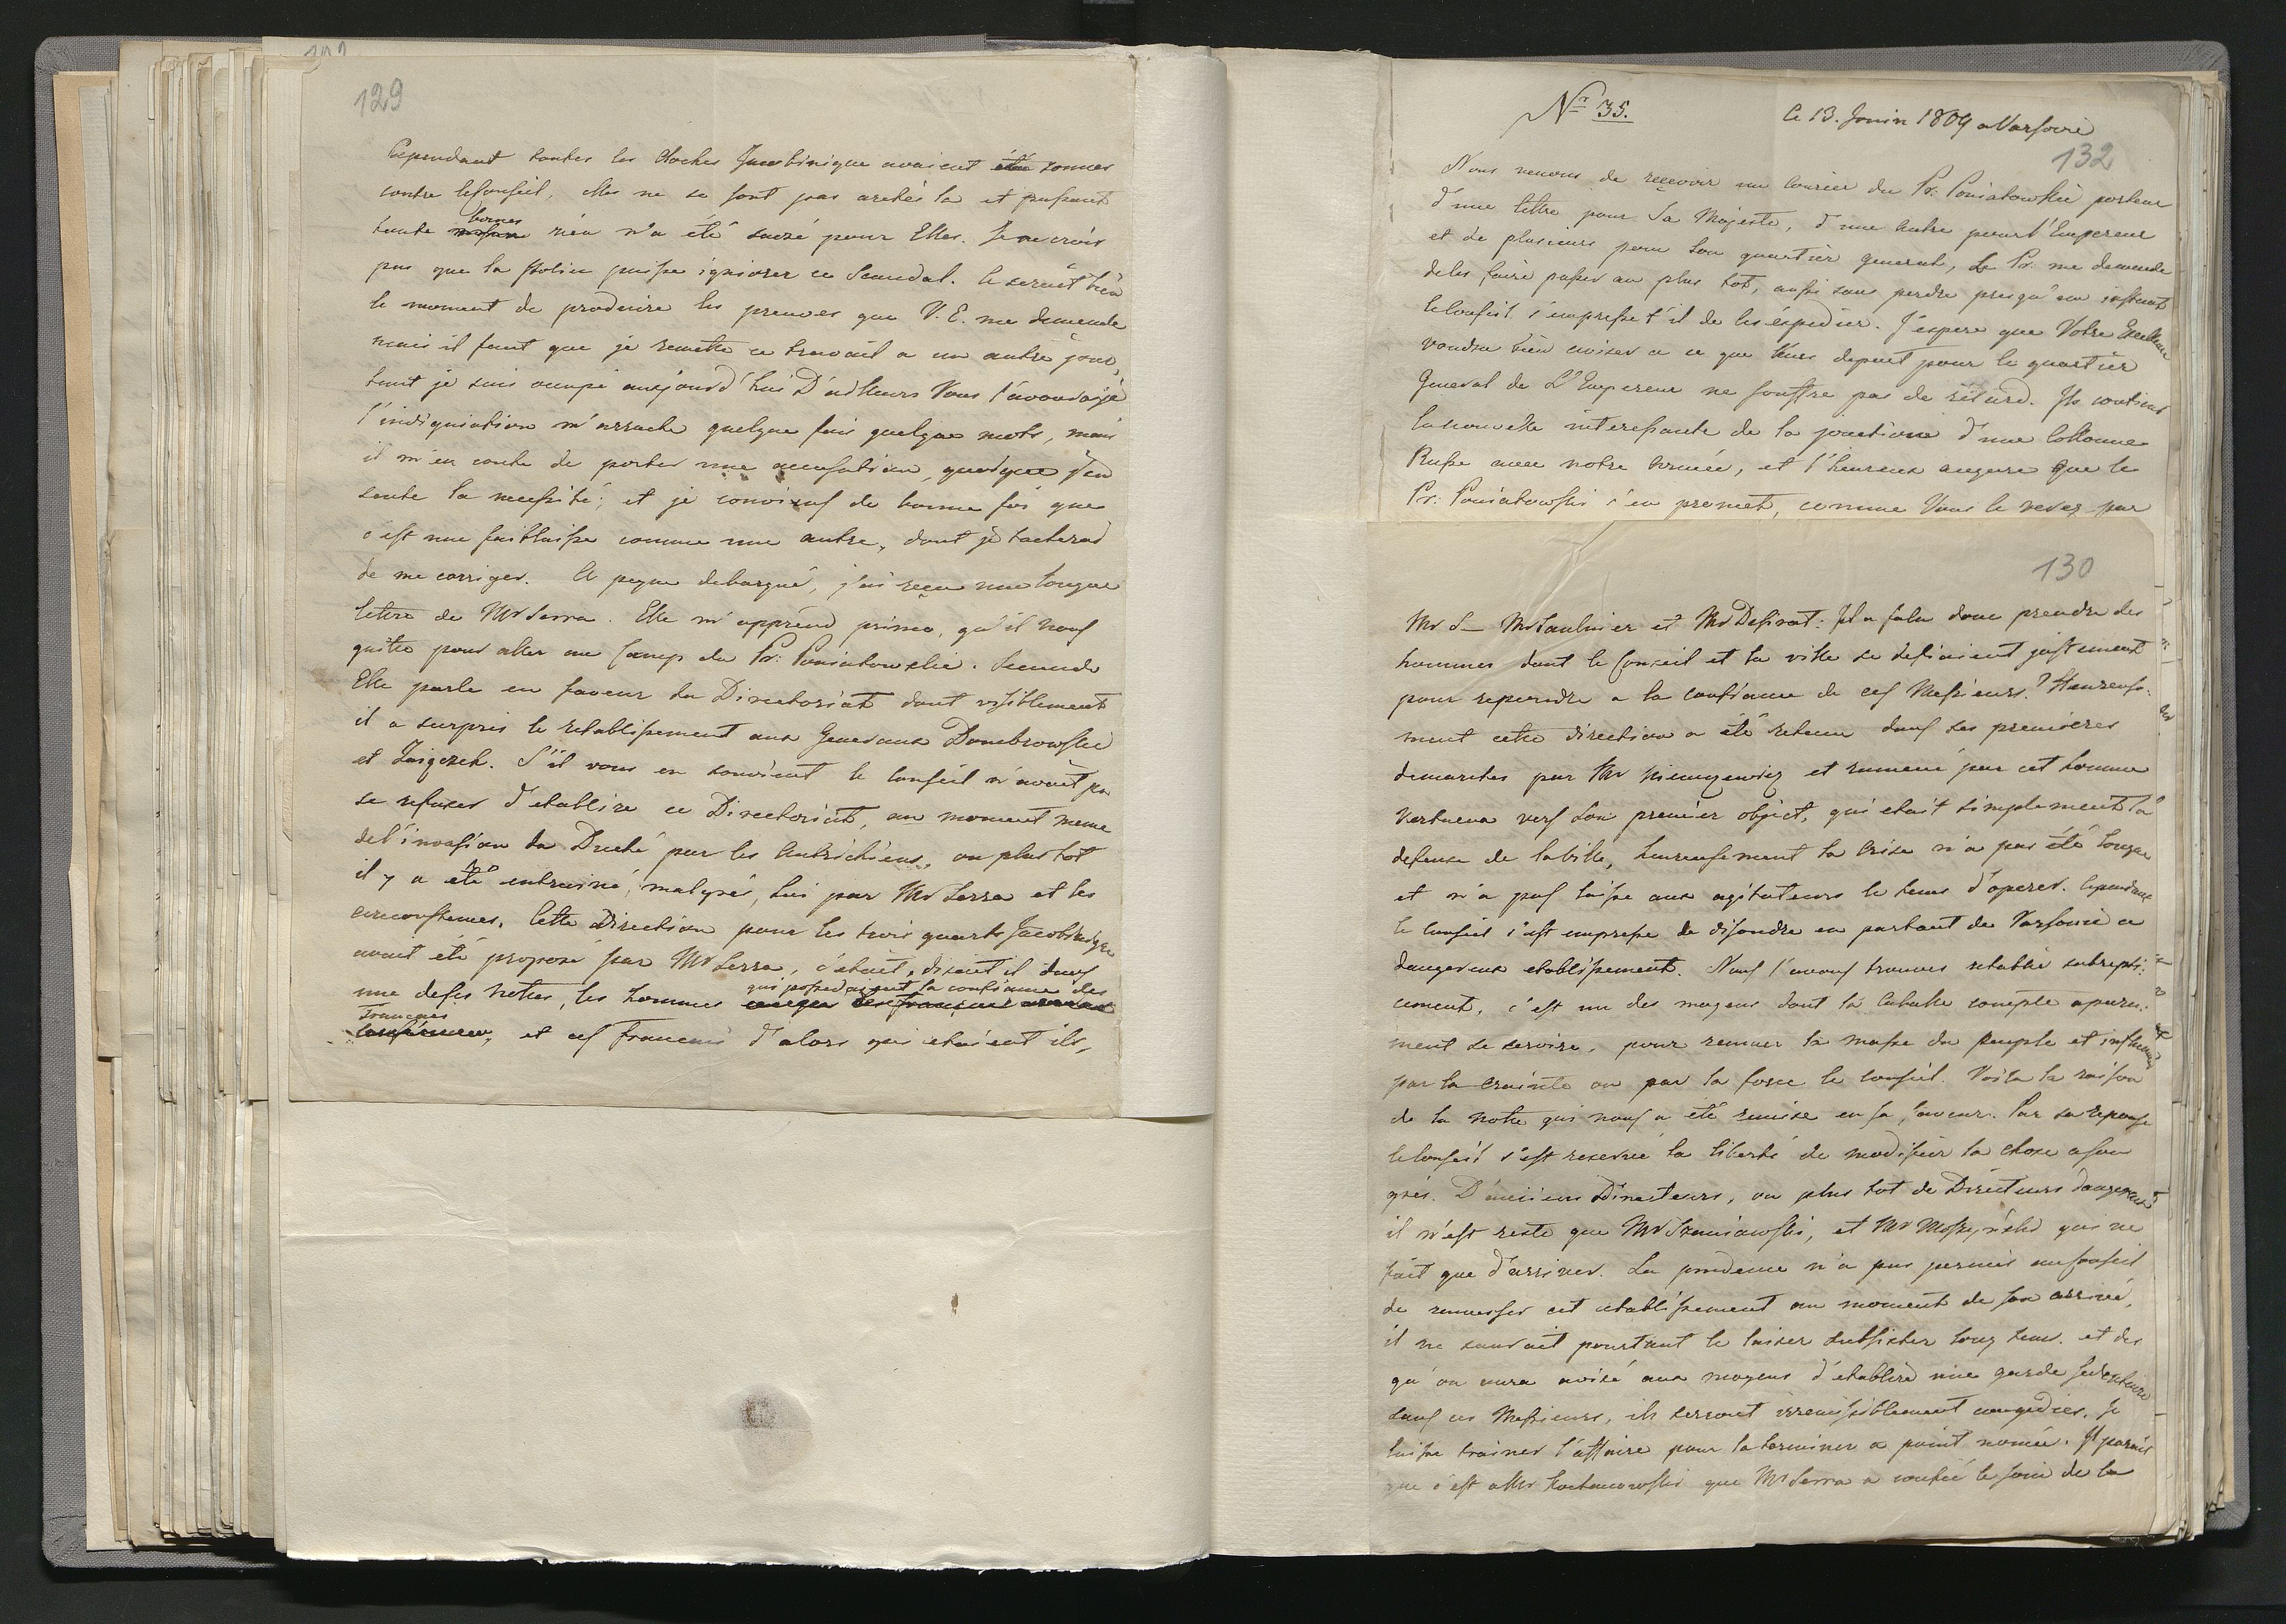 129
Cependant toutes les cloches Jacobinique avaient été sonnes
contre leConseil, elles ne se sont pas aretés la et passant
toute bornes rien n'a été sacré pour Elles. Je ne crois
pas que la Police puisse igniorer ce Scandal. Ce seroit bien
le moment de produire les preuves que V.E. me demande
mais il faut que je remette ce travail a un autre jour,
tant je suis ocupé aujourd'hui D'ailleurs Vous l'avoueraije
l'indigniation m'arrache quelque fois quelques mots, mais
il m'en coute de porter une accusation, quoique j'en
sente la necessité; et je convient de bonne foi que
c'est une faiblaisse comme une autre, dont je tacherai
de me corriger. A peyne debarqué, j'ai reçu une longue
lettre de Mr Serra. Elle m'apprend primo, qu'il nous
quitte pour aller au Camp du Pr: Poniatowskie. Secundo
Elle parle en faveur du Directoriat dont visiblement
il a surpris le retablissement aux Generaux Dombrowskie
et Zaigczek. S'il vous en souvient le Conseil n'avoit pu
se refuser d'etablire ce Directoriat, au moment meme
del'invasion du Duché par les Autrichiens, ou plus tot
il y a été entrainé, malgré, lui par Mr Serra et les
circonstances. Cette Direction pour les trois quarts Jacobinique
avait été proposé par Mr Serra, c'etait, disait il dans
une deses notes, les hommes qui possedaient la confiance des
francais
et ces francais d'alors qui etaient ils,
Nr 35.
Ce 13. Jouin 1809 a Varsovie
132
Nous venons de reçevoir un Courier du Pr: Poniatowskie porteur
d'une lettre pour Sa Majeste, d'une autre pour l'Empereur
et de plusieurs pour son quartier general, Le Pr: me demande
deles faire passer au plus tot, aussi sans perdre presqu'un instant
leConseil s'empresse t'il de les éxpedier. J'espere que Votre Excellence
voudra bien aviser a ce que leurs depart pour le quartier
General de L'Empereur ne souffre pas de retard. Ils contiens
lanouvelle interessante de la jonction d'une Collonne
Russe avec notre Armée, et l'heureux augure que le
Pr: Poniatowski s'en promet, comme Vous le verez par
130
Mr S— Mr Saulnier et Mr Desirat: Il a falu donc prendre des
hommes dont le Conseil et la ville se defiaient justement
pour repondre a la confiance de ces Messieurs? Heureuse-
ment cette direction a été retenue dans ses premieres
demarches par Mr Niemcewicz et ramené par cet homme
Vertueux vers son premier object, qui etait simplement la
defense de laville, heureusement la Crise n'a pas été longue
et n'a pas laisse aux agitateurs le tems d'operer. Cependant
le Conseil s'est empresse de disoudre en partant de Varsovie ce
dangereux etablissement. Nous l'avons trouves retablie subrepti-
cement, c'est un des moyens dont la Caballe compte aparu-
ment se servire, pour remuer la masse du peuple et influencer
par la crainte ou par la force le Conseil. Voila la raison
de la note qui nous a été remise en sa faveur. Par sa reponse
leConseil s'est reservée la liberté de modifier la chose ason
gré. D'anciiens Directeurs, ou plus tot de Directeurs dangereux
il n'est resté que Mr Szaniawski, et Mr Moszynskie qui ne
fait que d'arriver. La prudence n'a pas permis auConseil
de renverser cet etablissement au moment de son arrivé,
il ne saurait pourtant le laiser subsister long tems. et des
qu'on aura avisé aux moyens d'etablire une garde sedentaire
sans ces Messieurs, ils serront irremisiblement congediés. Je
laisse trainer l'affaire pour la terminer a point nomée. Il parait
que c'est a Mr Kochanowski que Mr Serra a confié le soin de la